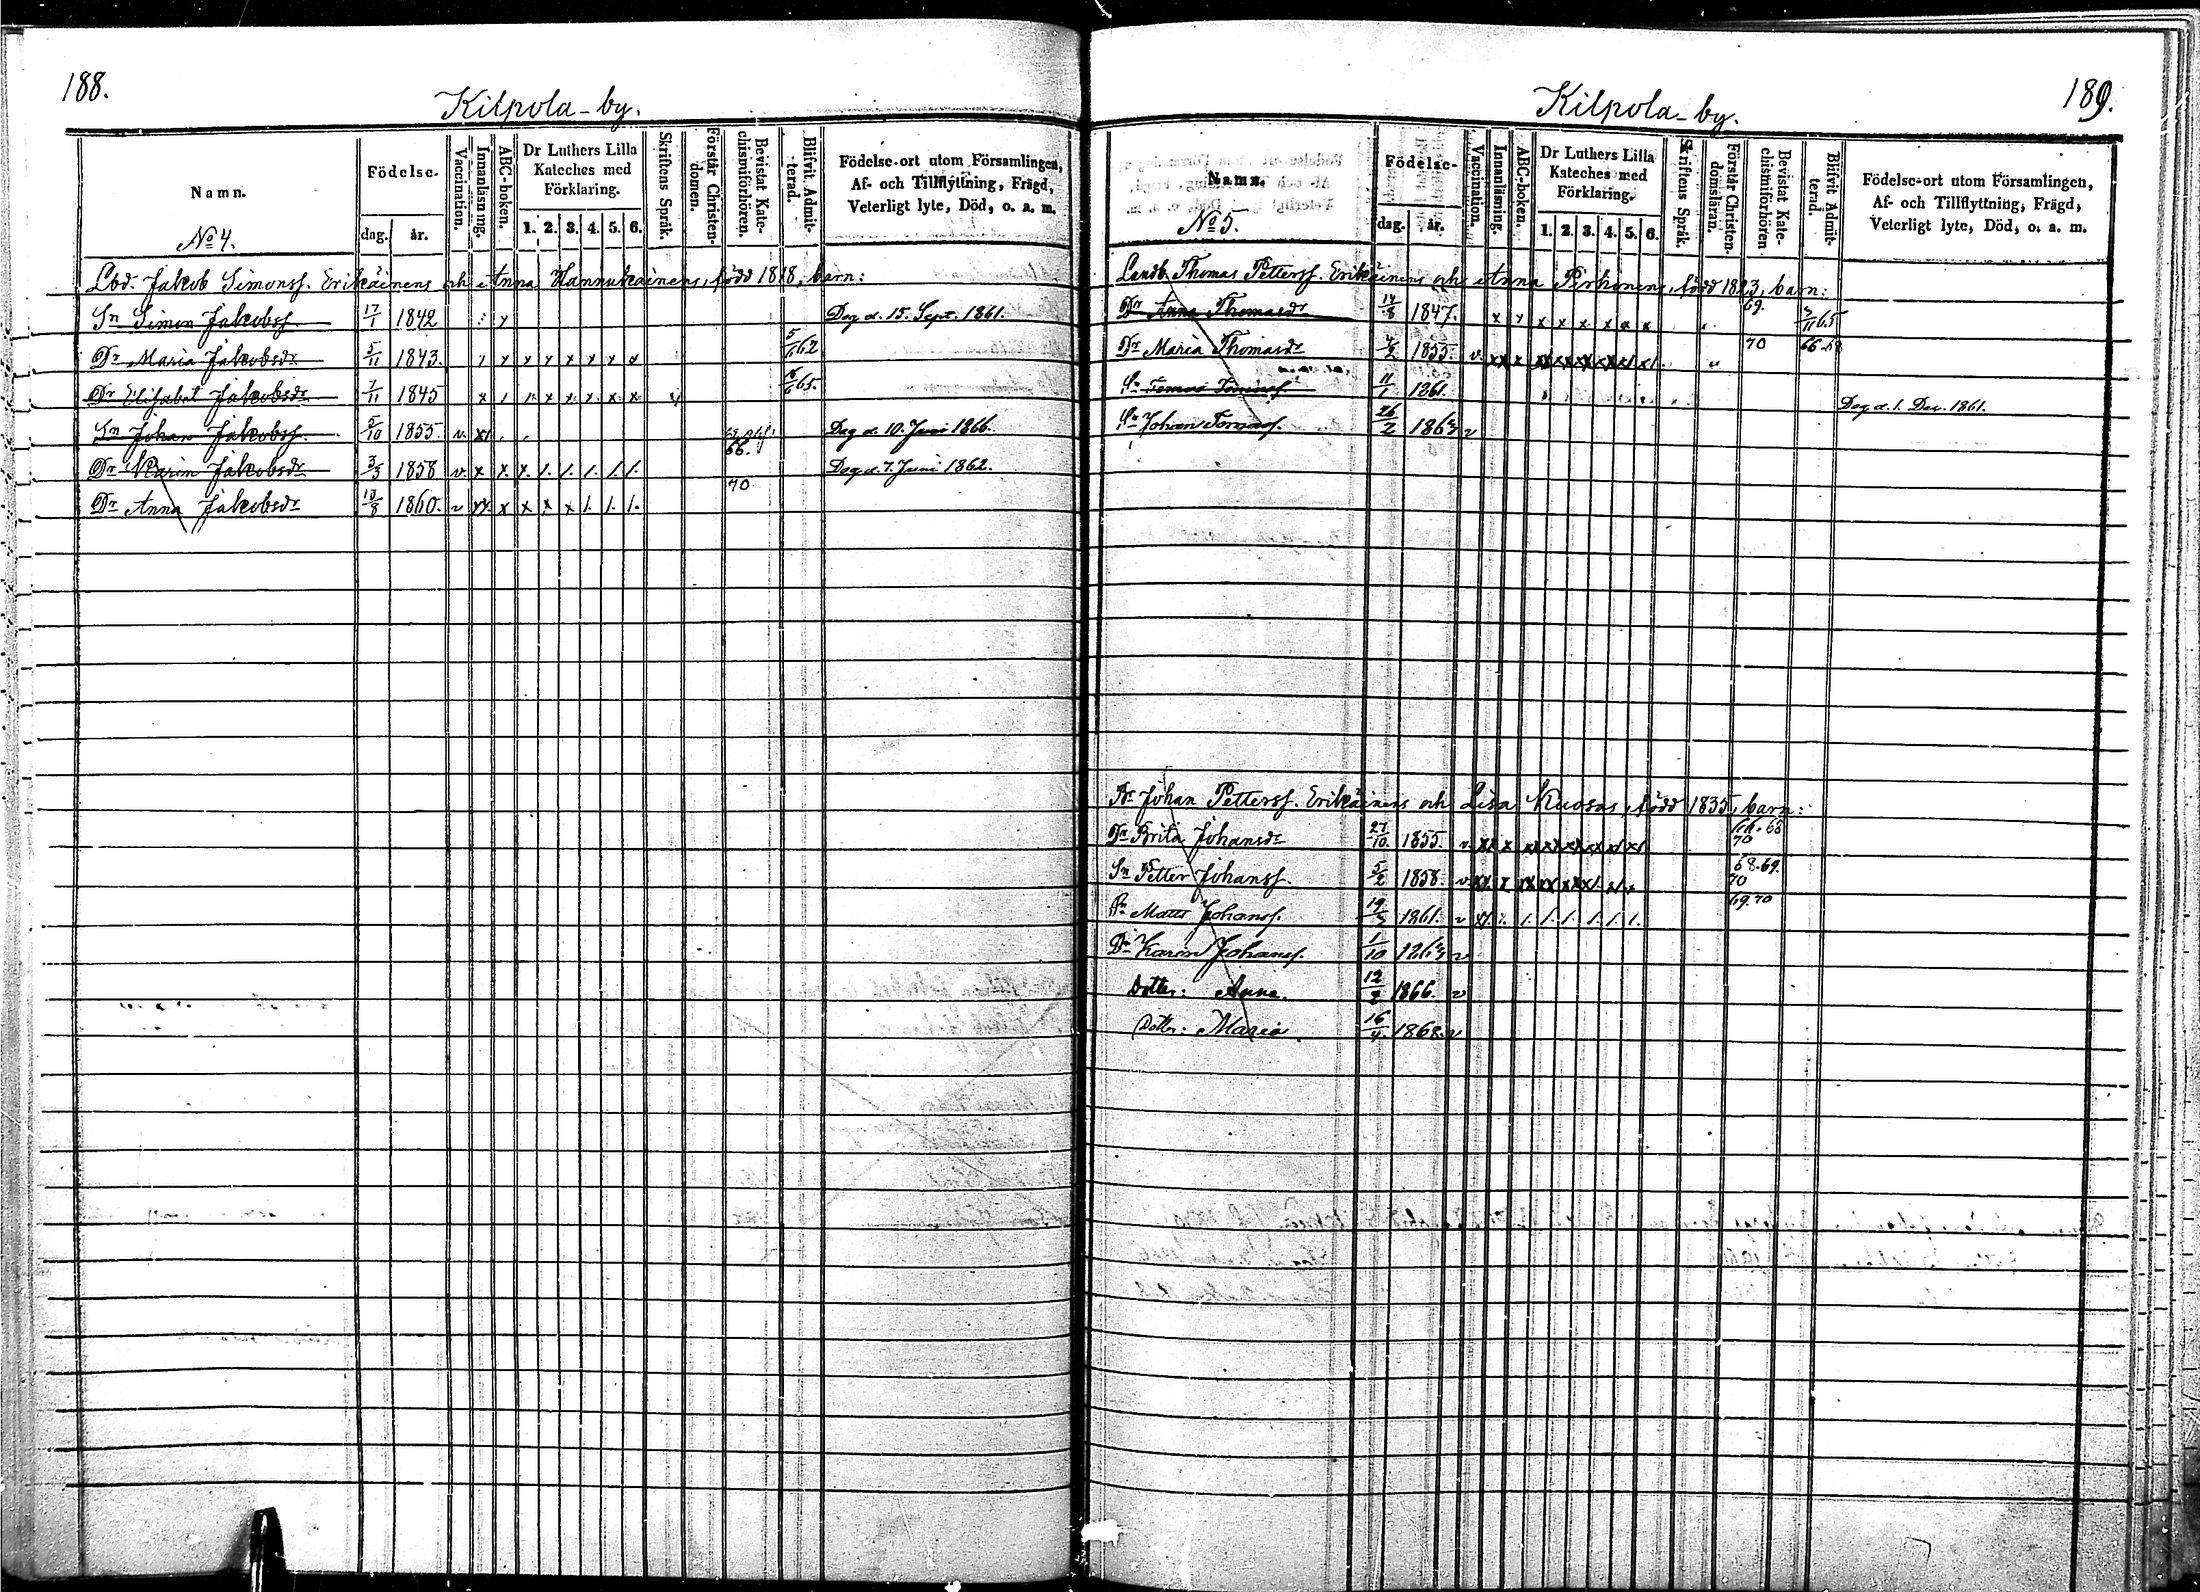 188.
Kilpola-by.
Namn.
Födelse-
dag.
år.
Vaccination.
Innanläsning.
ABC-boken.
Dr Luthers Lilla
Kateches med
Förklaring.
1. 2. 3. 4. 5. 6.
Skriftens Språk.
Förstår Christen-
domen.
Bevistat Kate-
chismiförhören.
Blifvit Admit-
terad.
Födelse-ort utom Församlingen,
Af- och Tillflyttning, Frägd,
Veterligt lyte, Död, o. a. m.
No 4.
Lbd. Jakob Simonss. Erikäinens och Anna Hannukainens, född 1818, barn:
Sn Simon Jakobss. 17/1 1842 Dog d. 15. Sept. 1861.
Dr Maria Jakobsdr 5/11 1843. x x x x x x 5/6 62
Dr Elisabet Jakobsdr 7/11 1845 x x x x x x 65.
Sn Johan Jakobss. 5/10 1855. v. 66. Dog d. 10. Juni 1866.
Dr Karin Jakobsdr 3/3 1858 v. x x x 1. 1. 1. 1. 1. Dog d. 7. Juni 1862.
70.
Dr Anna Jakobsdr 13/8 1860. v x x x x 1. 1. 1.
189.
Kilpola-by.
Namn.
Födelse-
dag.
år.
Vaccination.
Innanläsning.
ABC-boken.
Dr Luthers Lilla
Kateches med
Förklaring.
1. 2. 3. 4. 5. 6.
Skriftens Språk.
Förstår Christen-
domsläran.
Bevistat Kate-
chismiförhören
Blifvit Admit-
terad.
Födelse-ort utom Församlingen,
Af- och Tillflyttning, Frägd,
Veterligt lyte, Död, o. a. m.
No 5.
Landb. Thomas Petterss. Erikäinens och Anna Pirhonens, född 1823, barn:
Dr Anna Thomasdr 14/8 1847. x x x x x x x x 69. 65
Dr Maria Thomasdr 1855. v. 70 66-68
Sn 11/1 1861. Dog d. 1. Dec. 1861.
Sn Johan Tomass. 26/2 v
Br Johan Petterss. Erikäinens och Lisa Kuosas, född 1835, barn:
Dr Brita Johansdr 27/10. 1855. v. 68 70
Sn Petter Johanss. 5/2 1858. v. 68.69. 70
Sn Matts Johanss. 1861. v 1. 1. 1. 1. 1. 1. 69.70
Dr Karin Johanss. 1/10 v
Dotter: Anna. 12/2 1866. v
Dotter: Maria. 16/4 1868. v